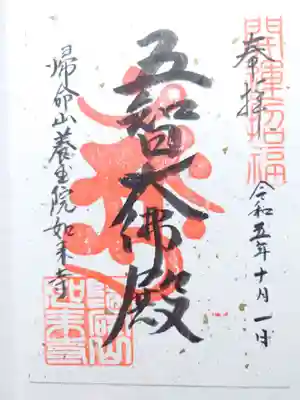 開運招福
奉拝
令和五年十月一日
五智大佛殿
帰命山養玉院如来寺